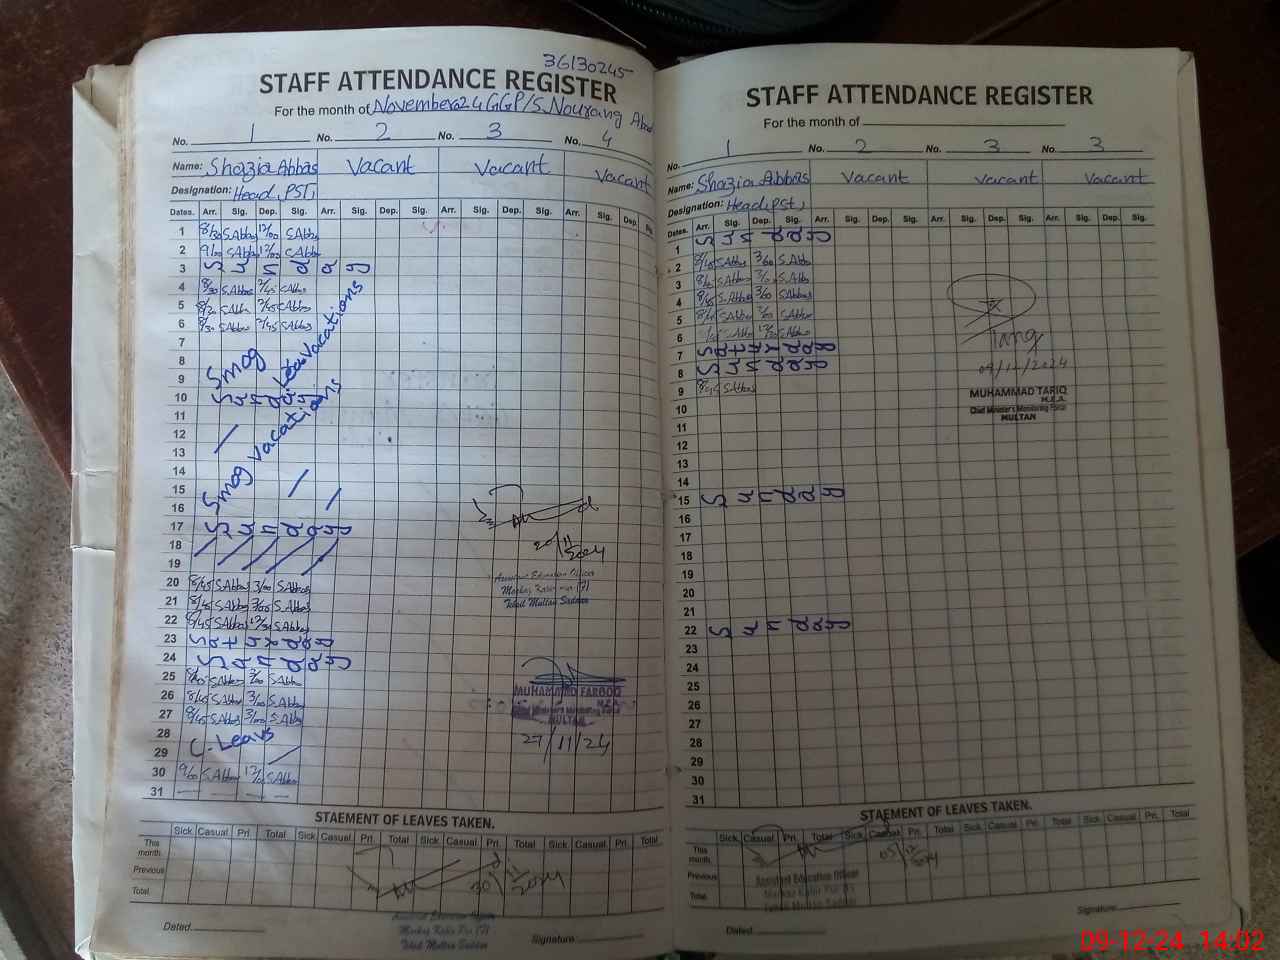 36130245
STAFF ATTENDANCE REGISTER
For the month of November 24 GGP/S Nourang Abad
No. 1 No. 2 No. 3 No. 4
Name: Shazia Abbas Vacant Vacant Vacant
Designation: Head, PST,
Dates. Arr. Sig. Dep. Sig. Arr. Sig. Dep. Sig. Arr. Sig. Dep. Sig. Arr. Sig. Dep.
1 8/30 S.Abbas 12/00 S.Abbas
2 9/00 S.Abbas 12/00 S.Abbas
3 Sunday
4 8/30 S.Abbas 2/45 S.Abbas
5 8/30 S.Abbas 2/45 S.Abbas
6 8/30 S.Abbas 2/45 S.Abbas
7
8 Smog vacations
9
10 Sunday
11
12
13
14 Smog vacations
15
16
17 Sunday
18
19
20 8/45 S.Abbas 3/00 S.Abbas
21 8/45 S.Abbas 3/00 S.Abbas
22 8/45 S.Abbas S.Abbas
23 Saturday
24 Sunday
25 S.Abbas S.Abbas
26 8/45 S.Abbas 3/00 S.Abbas
27 8/45 S.Abbas 3/00 S.Abbas
28
29 C-Leave
30 9/00 S.Abbas 12/00 S.Abbas
31
20/11/2024
Assistant Education Officer
Tehsil Multan Saddar
MUHAMMAD FAROOQ
M.E.A.
Chief Minister's Monitoring Force
MULTAN
27/11/24
STAEMENT OF LEAVES TAKEN.
Sick. Casual Pri. Total Sick. Casual Pri. Total Sick Casual Pri. Total Sick. Casual Pri. Total
This month.
Previous
Total.
30/11/2024
Assistant Education Officer
Markaz Kabir Pur (F)
Tehsil Multan Saddar
Dated Signature:
STAFF ATTENDANCE REGISTER
For the month of
No. 1 No. 2 No. 3 No. 3
Name: Shazia Abbas Vacant Vacant Vacant
Designation: Head, PST,
Dates. Arr. Sig. Dep. Sig. Arr. Sig. Dep. Sig. Arr. Sig. Dep. Sig. Arr. Sig. Dep. Sig.
1 Sunday
2 8/45 S.Abbas 3/00 S.Abbas
3 S.Abbas S.Abbas
4 8/45 S.Abbas 3/00 S.Abbas
5 S.Abbas S.Abbas
6 S.Abbas S.Abbas
7 Saturday
8 Sunday
9 8/45 S.Abbas
10
11
12
13
14
15 Sunday
16
17
18
19
20
21
22 Sunday
23
24
25
26
27
28
29
30
31
Tariq
MUHAMMAD TARIQ
M.E.A.
Chief Minister's Monitoring Force
MULTAN
STAEMENT OF LEAVES TAKEN.
Sick. Casual Pri. Total Sick. Casual Pri. Total Sick Casual Pri. Total Sick. Casual Pri. Total
This month.
Previous
Total.
05/12/2024
Assistant Education Officer
Markaz Kabir Pur (F)
Tehsil Multan Saddar
Dated Signature:
09-12-24 14:02